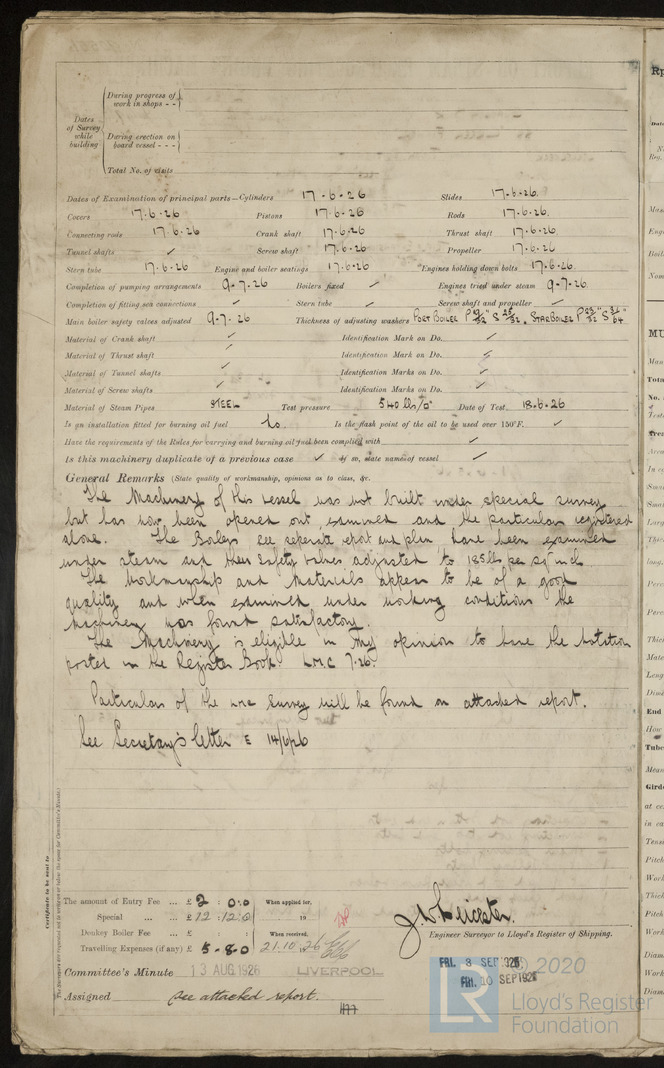 During progress of
work in shops - -
Dates
of Survey
while
building
During erection on
board vessel - - -
Total No. of visits
Dates of Examination of principal parts—Cylinders 17.6.26 Slides 17.6.26.
Covers 17.6.26 Pistons 17.6.26 Rods 17.6.26.
Connecting rods 17.6.26 Crank shaft 17.6.26 Thrust shaft 17.6.26.
Tunnel shafts ✓ Screw shaft 17.6.26 Propeller 17.6.26
Stern tube 17.6.26 Engine and boiler seatings 17.6.26 Engines holding down bolts 17.6.26.
Completion of pumping arrangements 9.7.26 Boilers fixed ✓ Engines tried under steam 9.7.26.
Completion of fitting sea connections ✓ Stern tube ✓ Screw shaft and propeller ✓
Main boiler safety valves adjusted 9.7.26 Thickness of adjusting washers Port Boiler P S 25/32, Star Boiler P 23/32" S 31/64"
Material of Crank shaft ✓ Identification Mark on Do. ✓
Material of Thrust shaft ✓ Identification Mark on Do. ✓
Material of Tunnel shafts ✓ Identification Marks on Do. ✓
Material of Screw shafts ✓ Identification Marks on Do. ✓
Material of Steam Pipes STEEL Test pressure 540 lbs/□" Date of Test 18.6.26
Is an installation fitted for burning oil fuel No. Is the flash point of the oil to be used over 150°F. ✓
Have the requirements of the Rules for carrying and burning oil fuel been complied with ✓
Is this machinery duplicate of a previous case ✓ If so, state name of vessel ✓
General Remarks (State quality of workmanship, opinions as to class, &c.
The Machinery of this vessel was not built under special survey
but has now been opened out, examined and the particulars registered
above. The Boilers see seperate report and plan have been examined
under steam and their Safety Valves adjusted to 185 lbs per sq inch.
The Workmanship and Materials appear to be of a good
quality and when examined under working conditions the
Machinery was found satisfactory.
The Machinery is eligible in my opinion to have the notation
posted in the Register Book LMC 7.26.
Particulars of the LMC Survey will be found on attached report.
See Secretary's letter E 14/6/26
Certificate to be sent to
The amount of Entry Fee ... £ 2 : 0:0 When applied for,
Special ... ... £ 12 : 12:0 19
Donkey Boiler Fee ... £ : : When received,
Travelling Expenses (if any) £ 5-8.0 21.10.26
J W Leicester.
Engineer Surveyor to Lloyd's Register of Shipping.
Committee's Minute 13 AUG 1926 LIVERPOOL
FRI. 3 SEP 1926
FRI. 10 SEP 1926
Assigned see attached report.
© 2020
LR
Lloyd's Register
Foundation